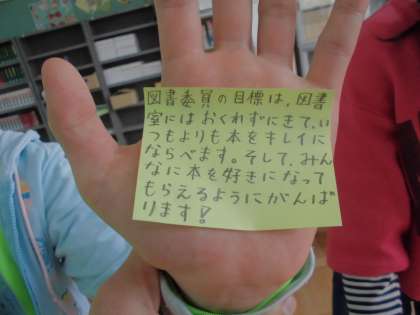 図書委員の目標は、図書
室にはおくれずにきて、い
つもよりも本をキレイに
ならべます。そして、みん
なに本を好きになって
もらえるようにがんば
ります!